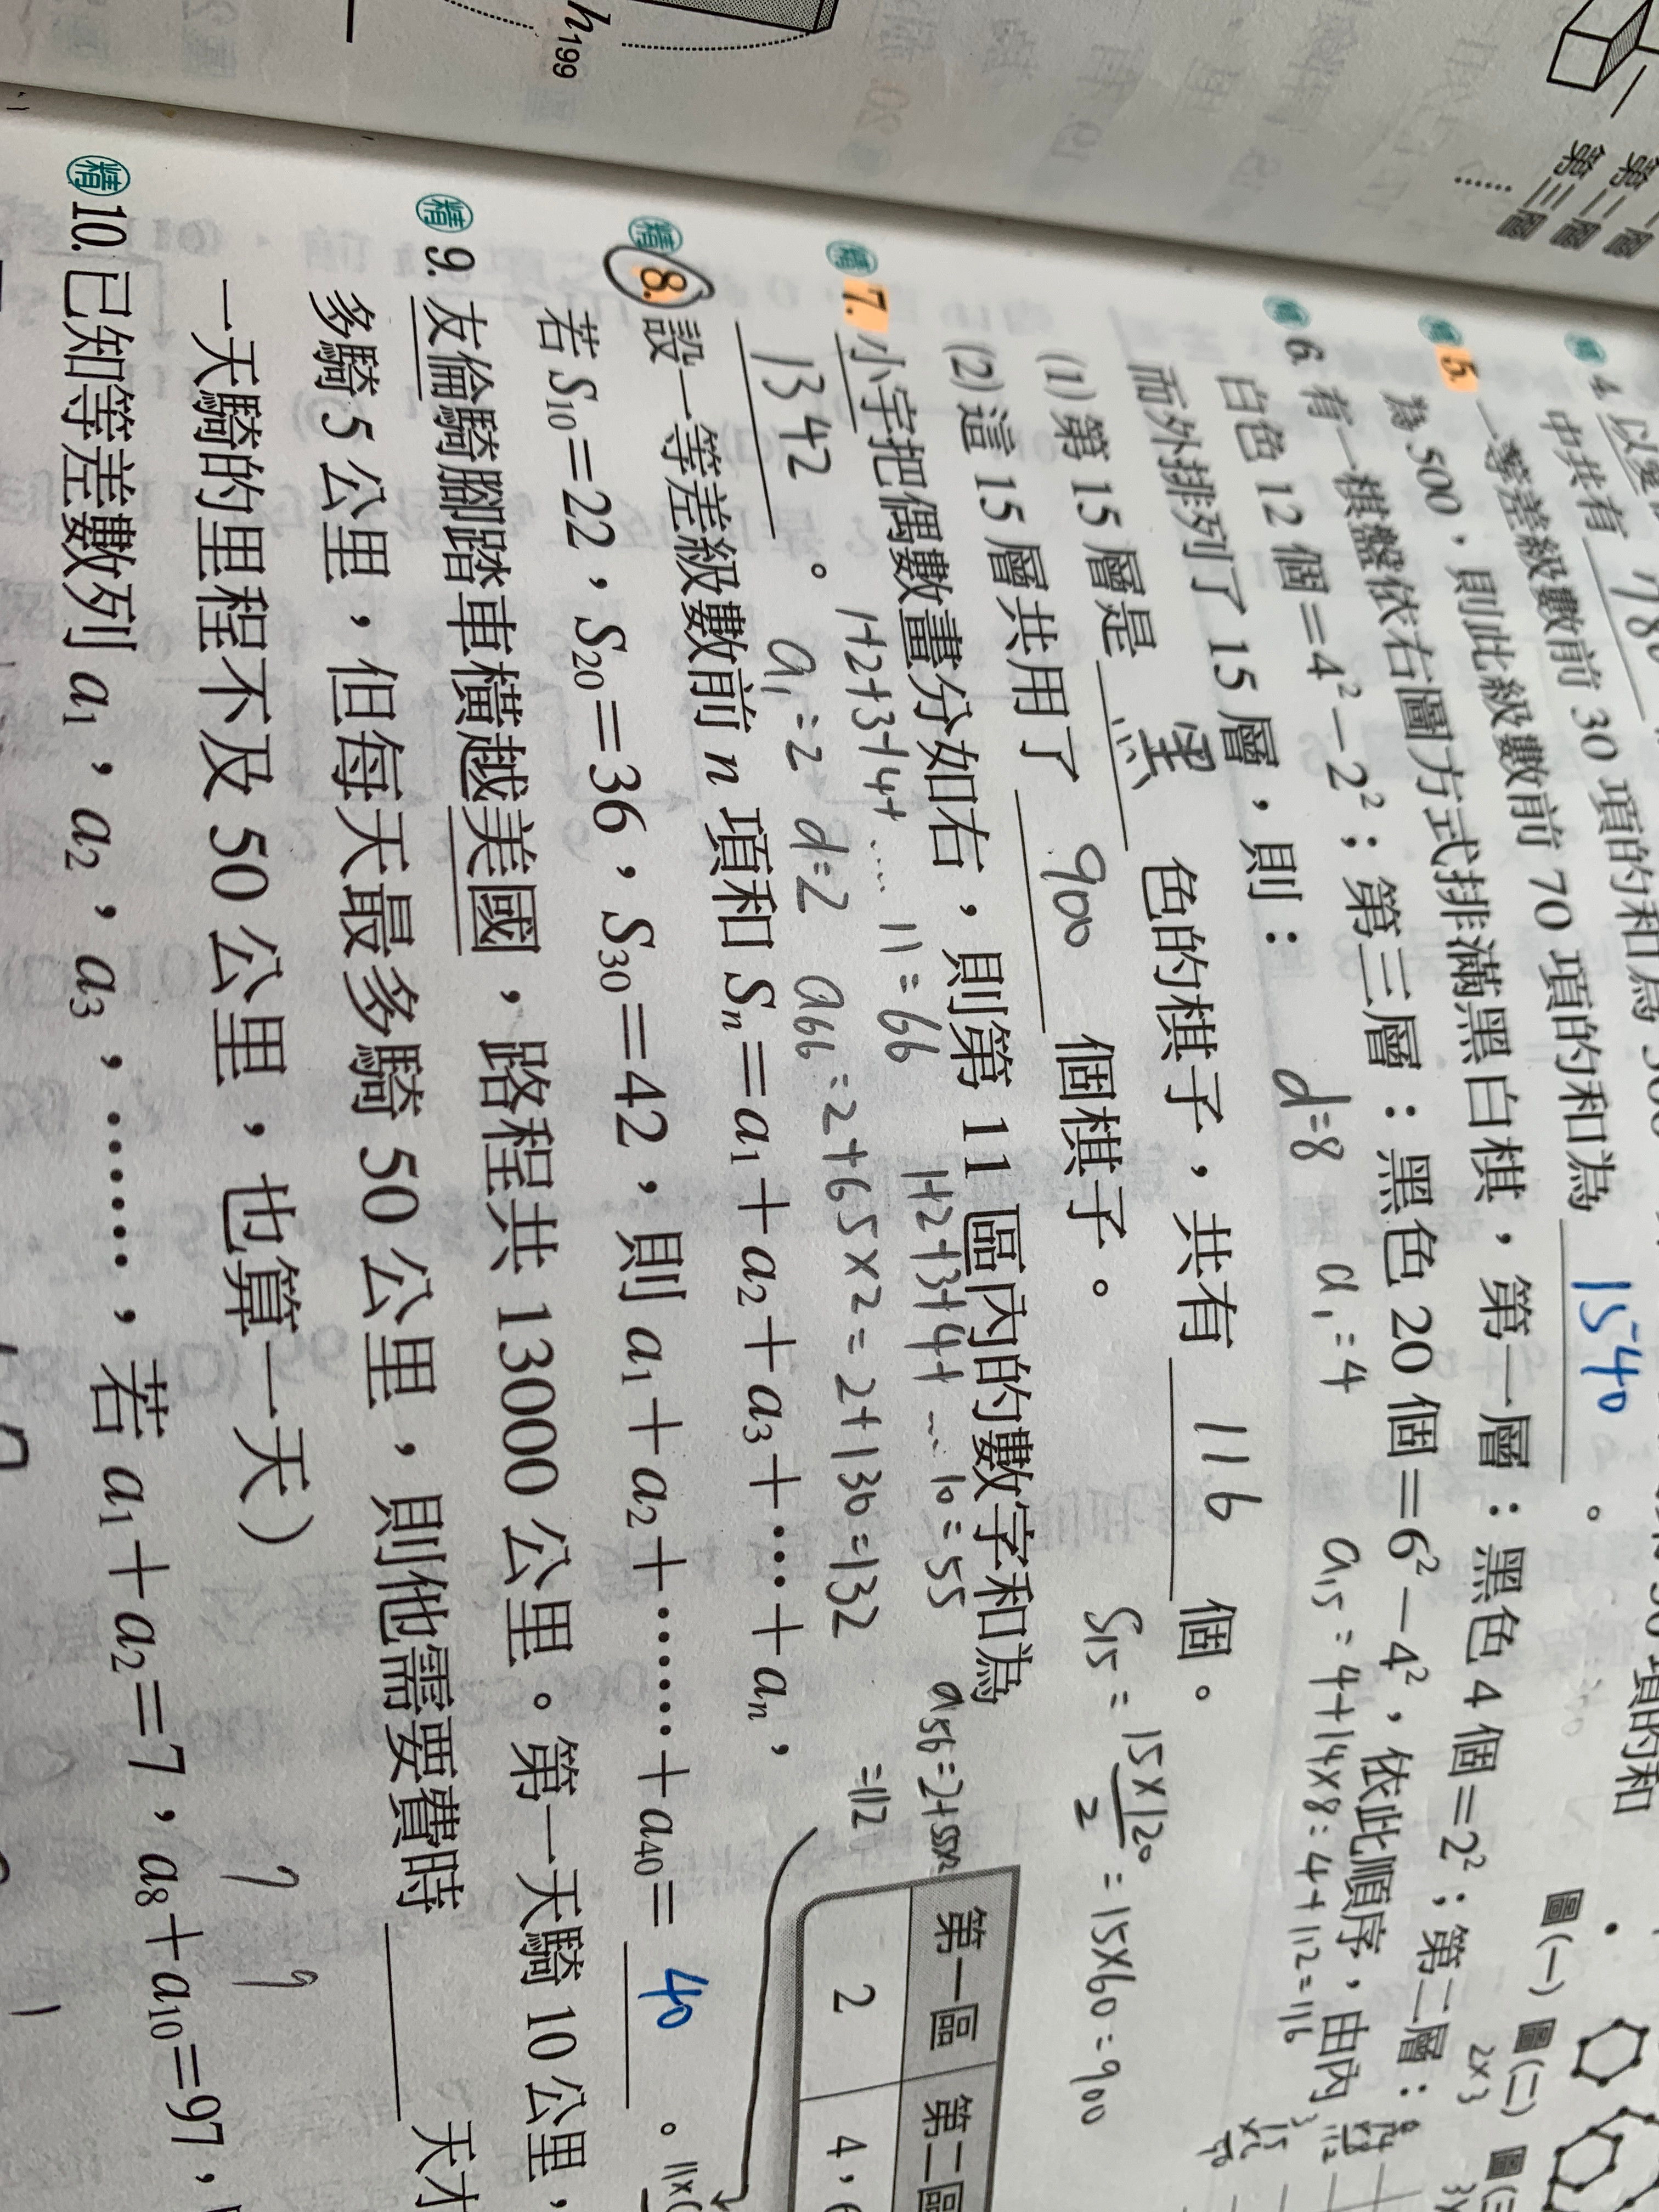 h₁₉₉
第一層
第二層
第三層
……
4. 以
中共有 780
1540 。
精 5. 一等差級數前 30 項的和為 300
為 500，則此級數前 70 項的和為
圖(一) 圖(二)
2×3
精 6. 有一棋盤依右圖方式排滿黑白棋，第一層：黑色 4 個＝2²；第二層：
白色 12 個＝4²－2²；第三層：黑色 20 個＝6²－4²，依此順序，由內
而外排列了 15 層，則：
d=8 a₁=4 a₁₅=4+14×8=4+112=116
(1) 第 15 層是 黑 色的棋子，共有 116 個。
(2) 這 15 層共用了 900 個棋子。
S₁₅=15×120/2=15×60=900
精 7. 小宇把偶數畫分如右，則第 11 區內的數字和為
1342 。
1+2+3+4+....11=66
1+2+3+4+...10=55
a₁=2 d=2 a₆₆=2+65×2=2+130=132
a₅₆=2+55×2
=112
第一區 第二區
2 4，6
11×(
精 8. 設一等差級數前 n 項和 Sₙ＝a₁＋a₂＋a₃＋…＋aₙ，
若 S₁₀＝22，S₂₀＝36，S₃₀＝42，則 a₁＋a₂＋……＋a₄₀＝ 40 。
精 9. 友倫騎腳踏車橫越美國，路程共 13000 公里。第一天騎 10 公里，
多騎 5 公里，但每天最多騎 50 公里，則他需要費時 天才
一天騎的里程不及 50 公里，也算一天）
? ?
精 10. 已知等差數列 a₁，a₂，a₃，……，若 a₁＋a₂＝7，a₈＋a₁₀＝97，